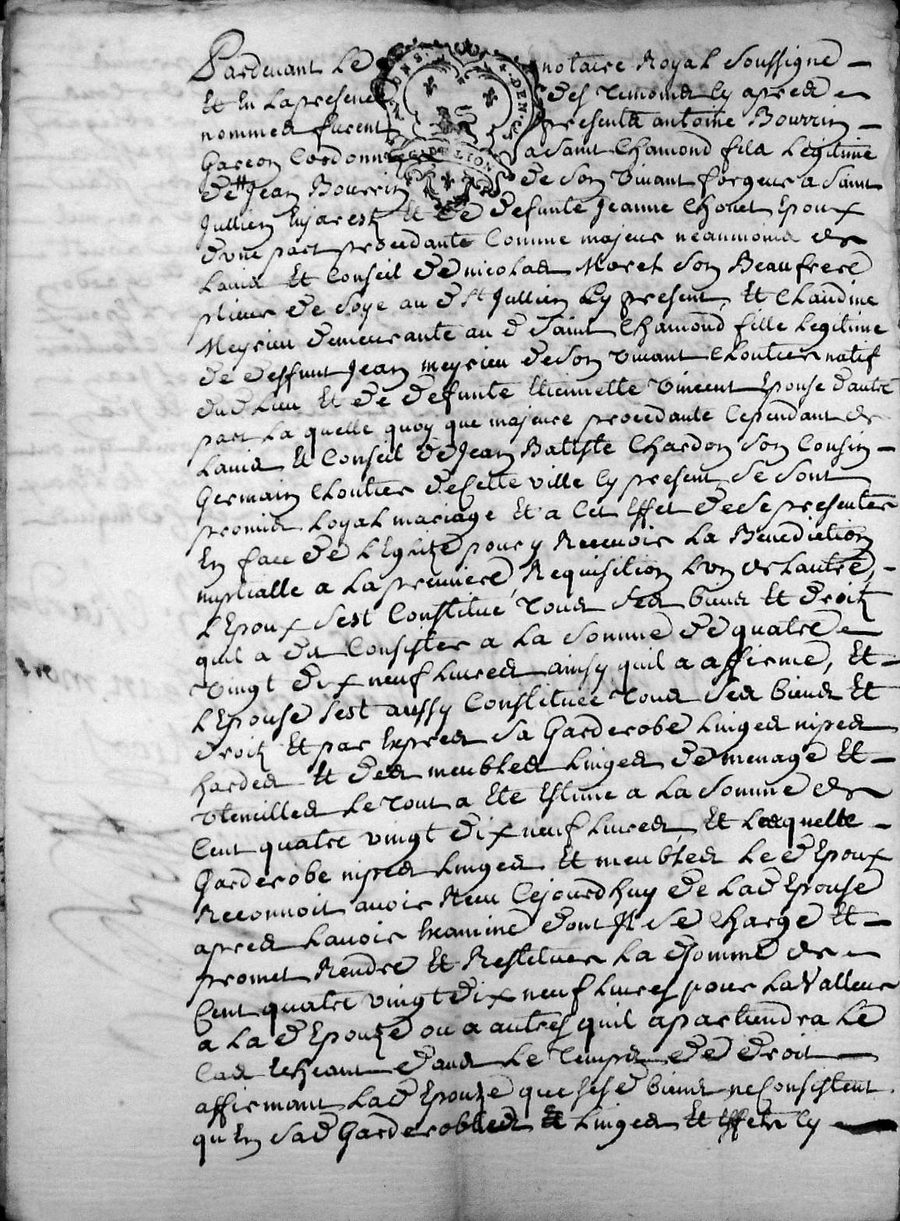 Pardevant Le notaire Royal Soussigné
Et En La presence des temoins Cy apres
nommes furent presents antoine Bourrin
Garçon Cordonnier a Saint Chamond fils Legitime
de Jean Bourrin de Son vivant forgeur a Saint
Jullien En jarest Et de deffunte Jeanne Chovet Epoux
d'une part procedante Comme majeur neaumoins de
Lavis Et Conseil de nicolas Moret Son Beaufrere
plieur de Soye au d St Jullien Cy present, Et Claudine
Meyrieu demeurante au d Saint Chamond fille Legitime
de deffunt Jean meyrieu de Son vivant Cloutier natif
du d Lieu Et de deffunte Etiennette Vincent Epouse d'autre
part La quelle quoy que majeure procedante Cependant de
Lavis Et Conseil de Jean Batiste Chardon Son Cousin
Germain Cloutier de Cette ville Cy present, Se Sont
promis Loyal mariage Et a Cet Effet de Se presenter
En face de L'Eglize pour y Recevoir La Benediction
nuptialle a La premiere Requisition L'un de Lautre,
L'Epoux S'est Constitué tous Ses biens Et droits
quil a dit Consister a La Somme de quatre
vingt dix neuf Livres ainsy quil a affirmé, Et
L'Epouse S'est aussy Constituée tous Ses biens Et
droits Et par Expres Sa Garderobe Linges nipes
hardes Et des meubles Linges de menage Et
Utencilles Le tout a Eté Estimé a La Somme de
Cent quatre vingt dix neuf Livres Et Lesquelle
Garderobe nipes Linges Et meubles Le d Epoux
Reconnoit avoir Reçu Cejourdhuy de La d Epouse
apres Lavoir Examiné dont Il Se Charge Et
promet Rendre Et Restituer La d Somme de
Cent quatre vingt dix neuf Livres pour La Valleur
a La d Epouze ou a autres quil apartiendra Le
Cas Echeant dans Le temps de droit
affirmant La d Epouze que Ses d biens ne Consistent
qu'En Sa d Garderobe Linges Et Effets Cy